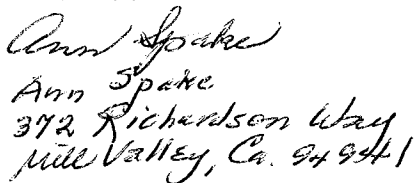 Ann Spake
Ann Spake
372 Richardson Way
Mill Valley, Ca. 94941